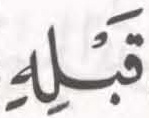 قَبْلِهِ